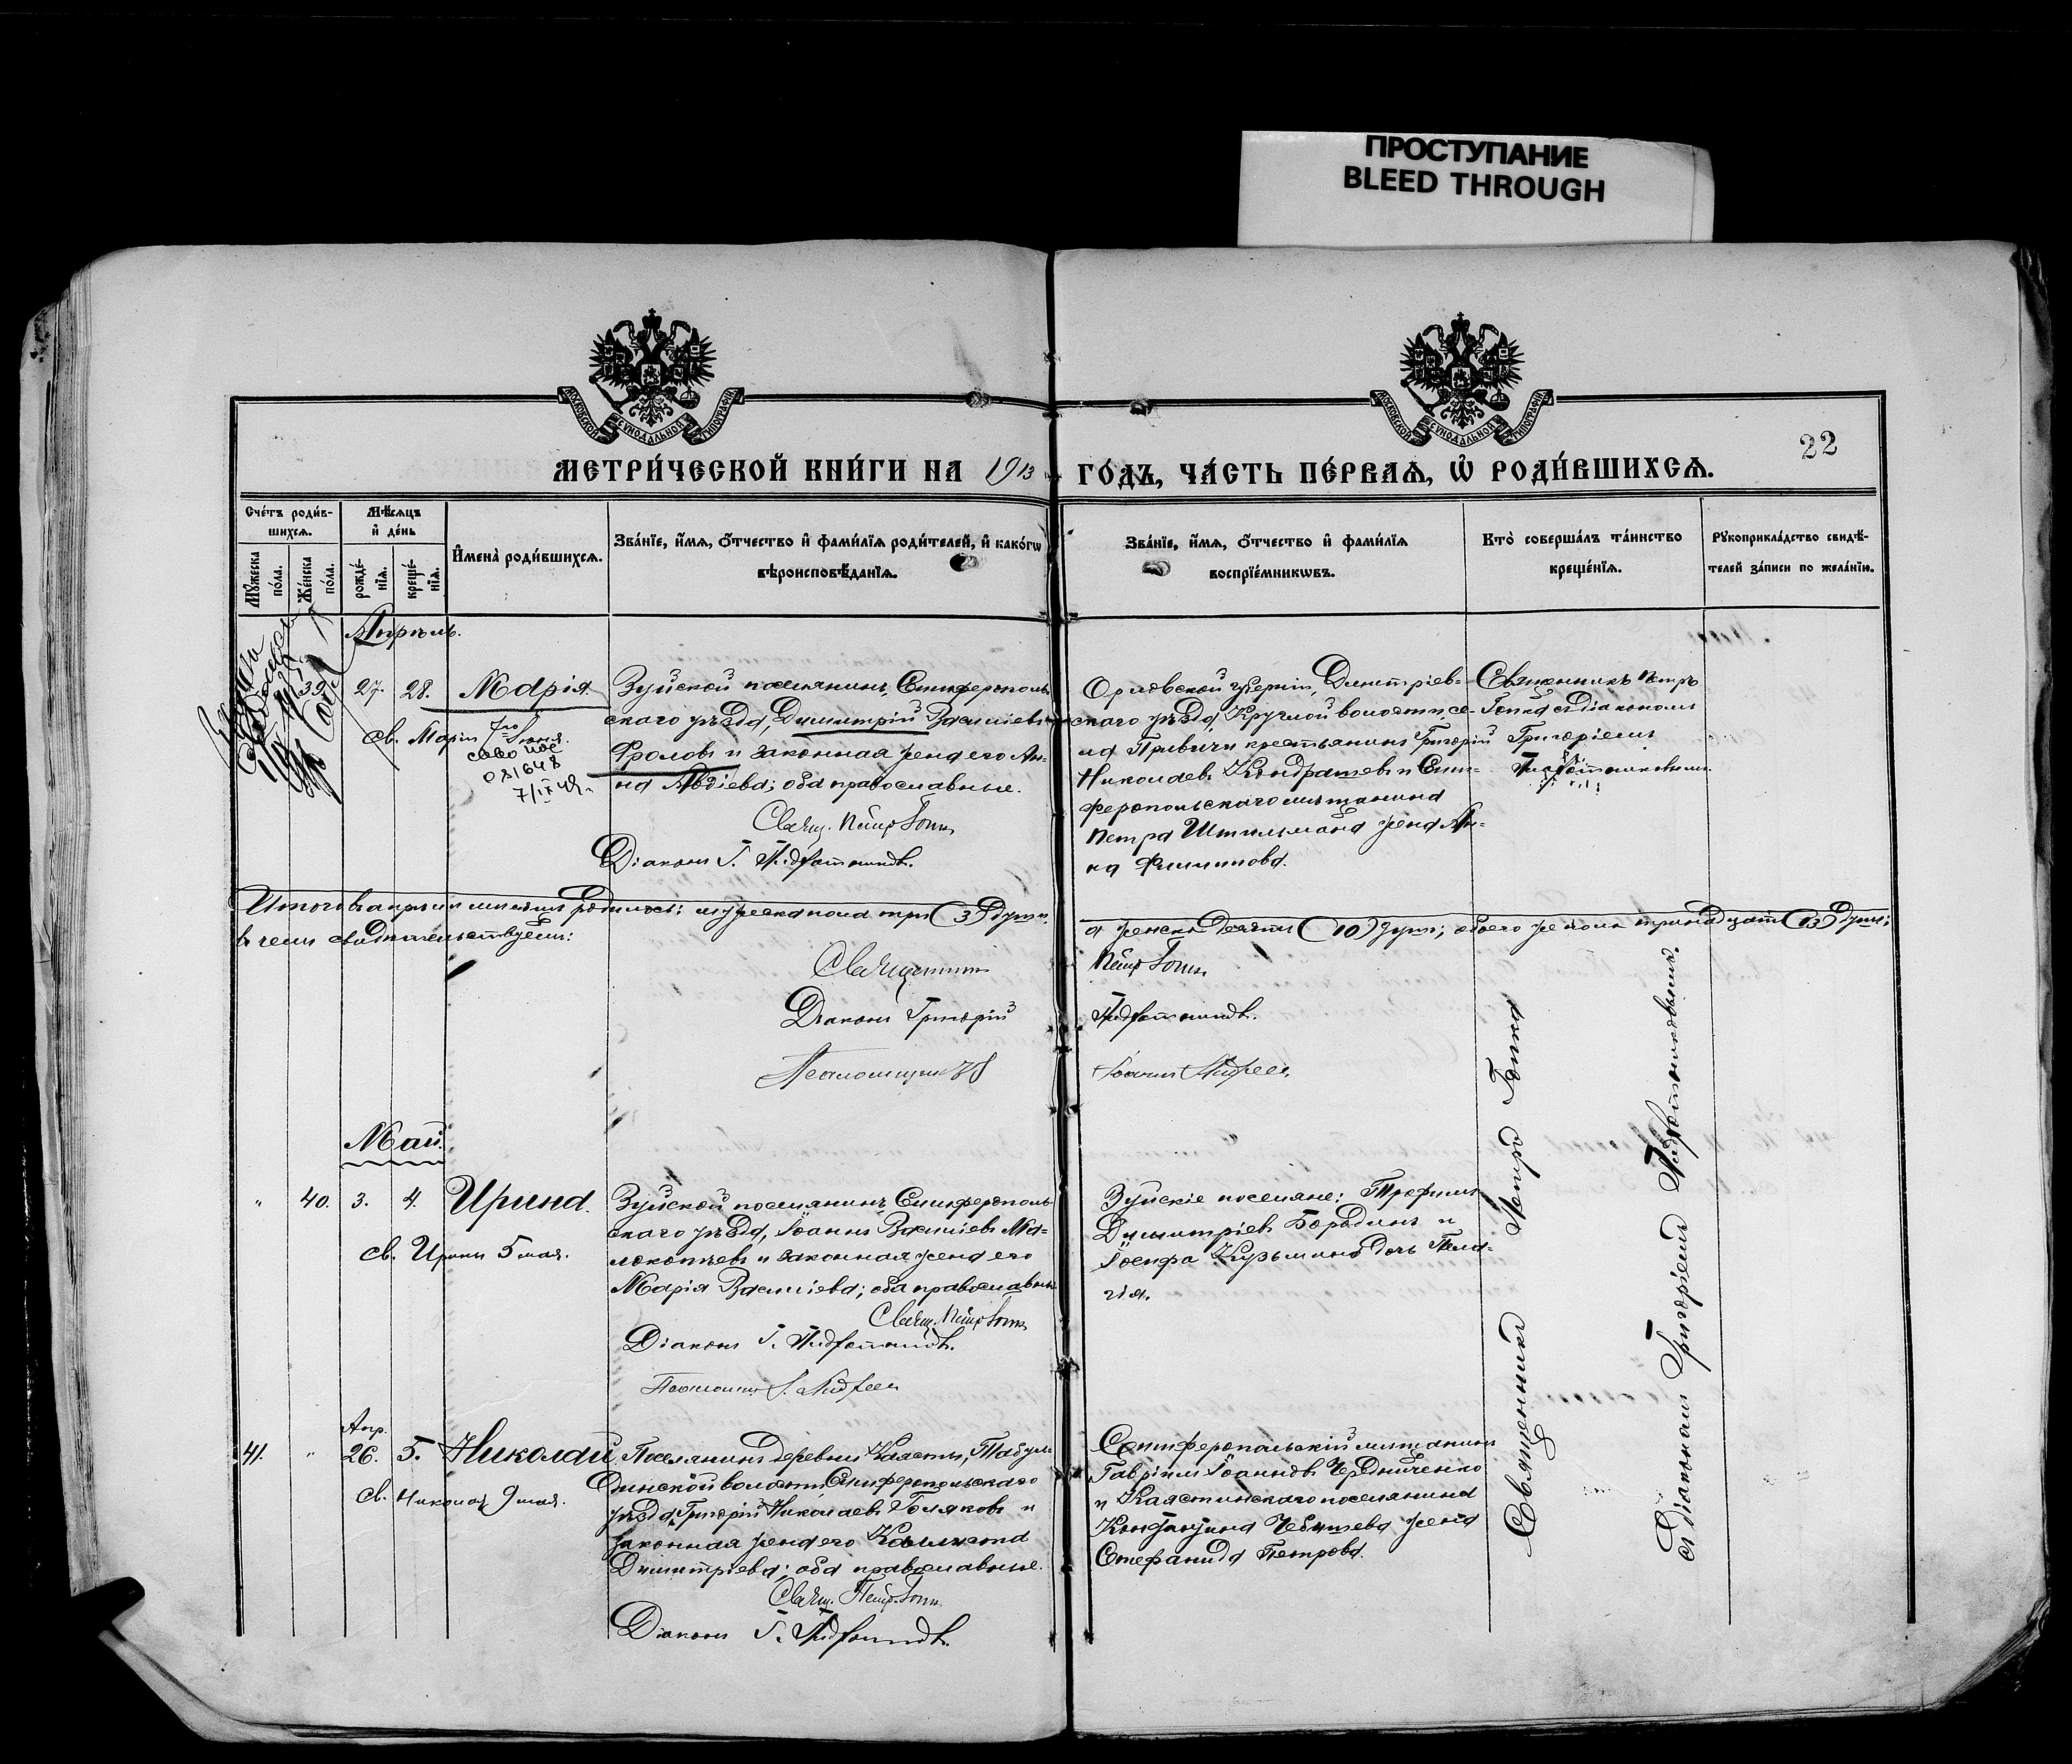 ПРОСТУПАНИЕ
BLEED THROUGH
МОСКОВСКОЙ СѴНОДАЛЬНОЙ ТИПОГРАФІИ
МОСКОВСКОЙ СѴНОДАЛЬНОЙ ТИПОГРАФІИ
22
МЕТРИ́ЧЕСКОЙ КНИ́ГИ НА 1913 ГО́ДЪ, ЧА́СТЬ ПЕ́РВАѦ, Ѡ҆ РОДИ́ВШИХСѦ.
Сче́тъ роди́в-
шихсѧ.
Мꙋ́жеска по́ла.
Же́нска по́ла.
Мѣ́сѧцъ
и҆ де́нь
рожде́-нїѧ.
креще́-нїѧ.
И҆мена̀ роди́вшихсѧ.
Зва́нїе, и҆́мѧ, ѻ҆́тчество и҆ фами́лїѧ роди́телей, и҆ како́гѡ
вѣроисповѣ́данїѧ.
Зва́нїе, и҆́мѧ, ѻ҆́тчество и҆ фами́лїѧ
воспрїе́мникѡвъ.
Кто̀ соверша́лъ та́инство
креще́нїѧ.
Рꙋкоприкла́дство свидѣ́-
телей за́писи по жела́нїю.
Апрѣль.
39. 27. 28. Марія.
св. Маріи
081648
Зуйской поселянинъ, Симферополь-
скаго уѣзда, Димитрій Василіевъ
Фроловъ и законная жена его Ан-
на Авдіева; оба православные.
Свящ. Петръ Гопка
Діаконъ Г.
Орловской губерніи, Дмитріев-
скаго уѣзда, Круглой волости, се-
ла Привичи крестьянинъ Григорій
Николаевъ Кондратевъ и Сим-
феропольскаго мѣщанина
Петра жена Ан-
на Филиппова.
Священникъ Петръ
Гопка съ діакономъ
Григоріемъ
Итого въ апрѣлѣ мѣсяцѣ родилось: мужеска пола три (3) души,
а женска десять (10) душъ; обоего же пола тринадцать (13) душъ;
въ чемъ свидѣтельствуемъ:
Священникъ Петръ Гопка
Діаконъ Григорій
Псаломщикъ Іоаннъ Андреев
Май.
" 40. 3. 4. Ирина.
св. Ирины 5 мая.
Зуйской поселянинъ, Симферополь-
скаго уѣзда, Іоаннъ Василіевъ Ма-
локотневъ и законная жена его
Марія Василіева; оба православные
Свящ. Петръ Гопка
Діаконъ Г.
Псаломщ. І. Андреев
Зуйскіе поселяне: Трофимъ
Димитріевъ Бородинъ и
Іосифа Кузьмина дочь Пела-
гія.
Апр.
41. " 26. 5. Николай
св. Николая 9 мая.
Поселянинъ деревни Каясты, Табул-
динской волости Симферопольскаго
уѣзда, Григорій Николаевъ Голяковъ и
законная жена его
Димитріева; оба православные.
Свящ. Петр. Гопка
Діаконъ Г.
Симферопольскій мѣщанинъ
Гавріилъ Іоанновъ Чередниченко
и Каястинскаго поселянина
Константина жена
Стефанида Петрова.
Священникъ Петръ Гопка
съ діакономъ Григоріемъ